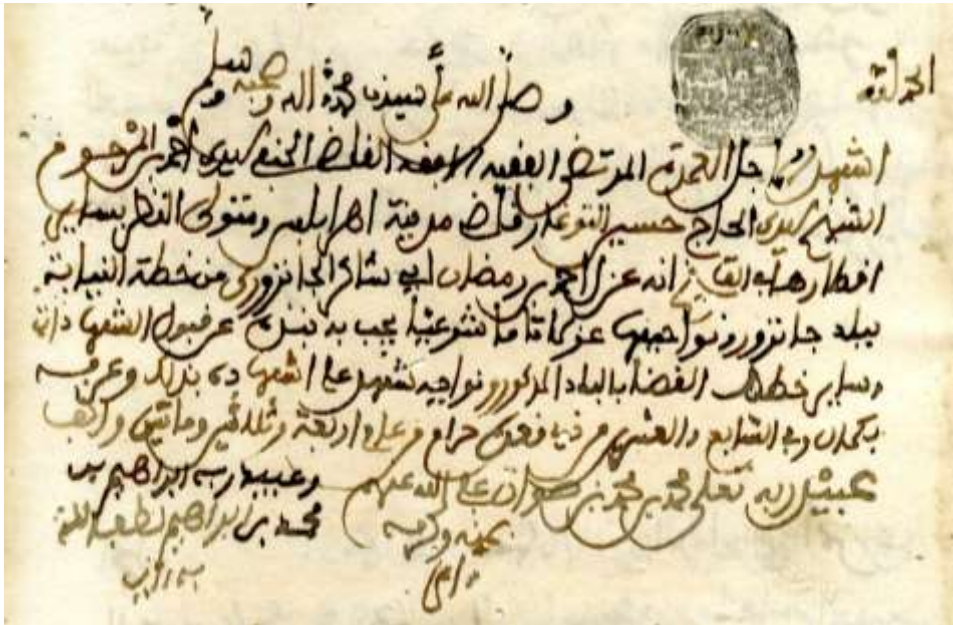 الحمد لله
وصلى الله على سيدنا محمد واله وصحبه وسلم
اشهد اجل العمدة المرتضى الفقيه الافقه القاضي الحنفي سيدي احمد بن المرحوم
الشيخ سيدي الحاج حسين التوغار قاضي مدينة اطرابلس ومتولى النظر بساير
اقطارها انه عزل احمد بن رمضان ابي شاكر الجانزوري من خطة النيابة
ببلد جانزور ونواحيها عزلا تاما شرعيا يجب به عن قبول الشهادات
وساير خطط القضا بالبلاد المذكور ونواحيه شهد على اشهاده بذلك وعرفه
بكمال وفي السابع والعشرين من ذي قعدة حرام من عام اربعة وثلاثين وماتين والف
عبيد ربه تعالى محمد بن محمد بن عفا الله عنهم وعبيد ربه ابراهيم بن
بمنه وكرمه محمد بن ابراهيم لطف الله
امين به امين